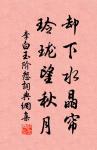 却下水晶帘
玲珑望秋月
李白玉阶怨词典网集